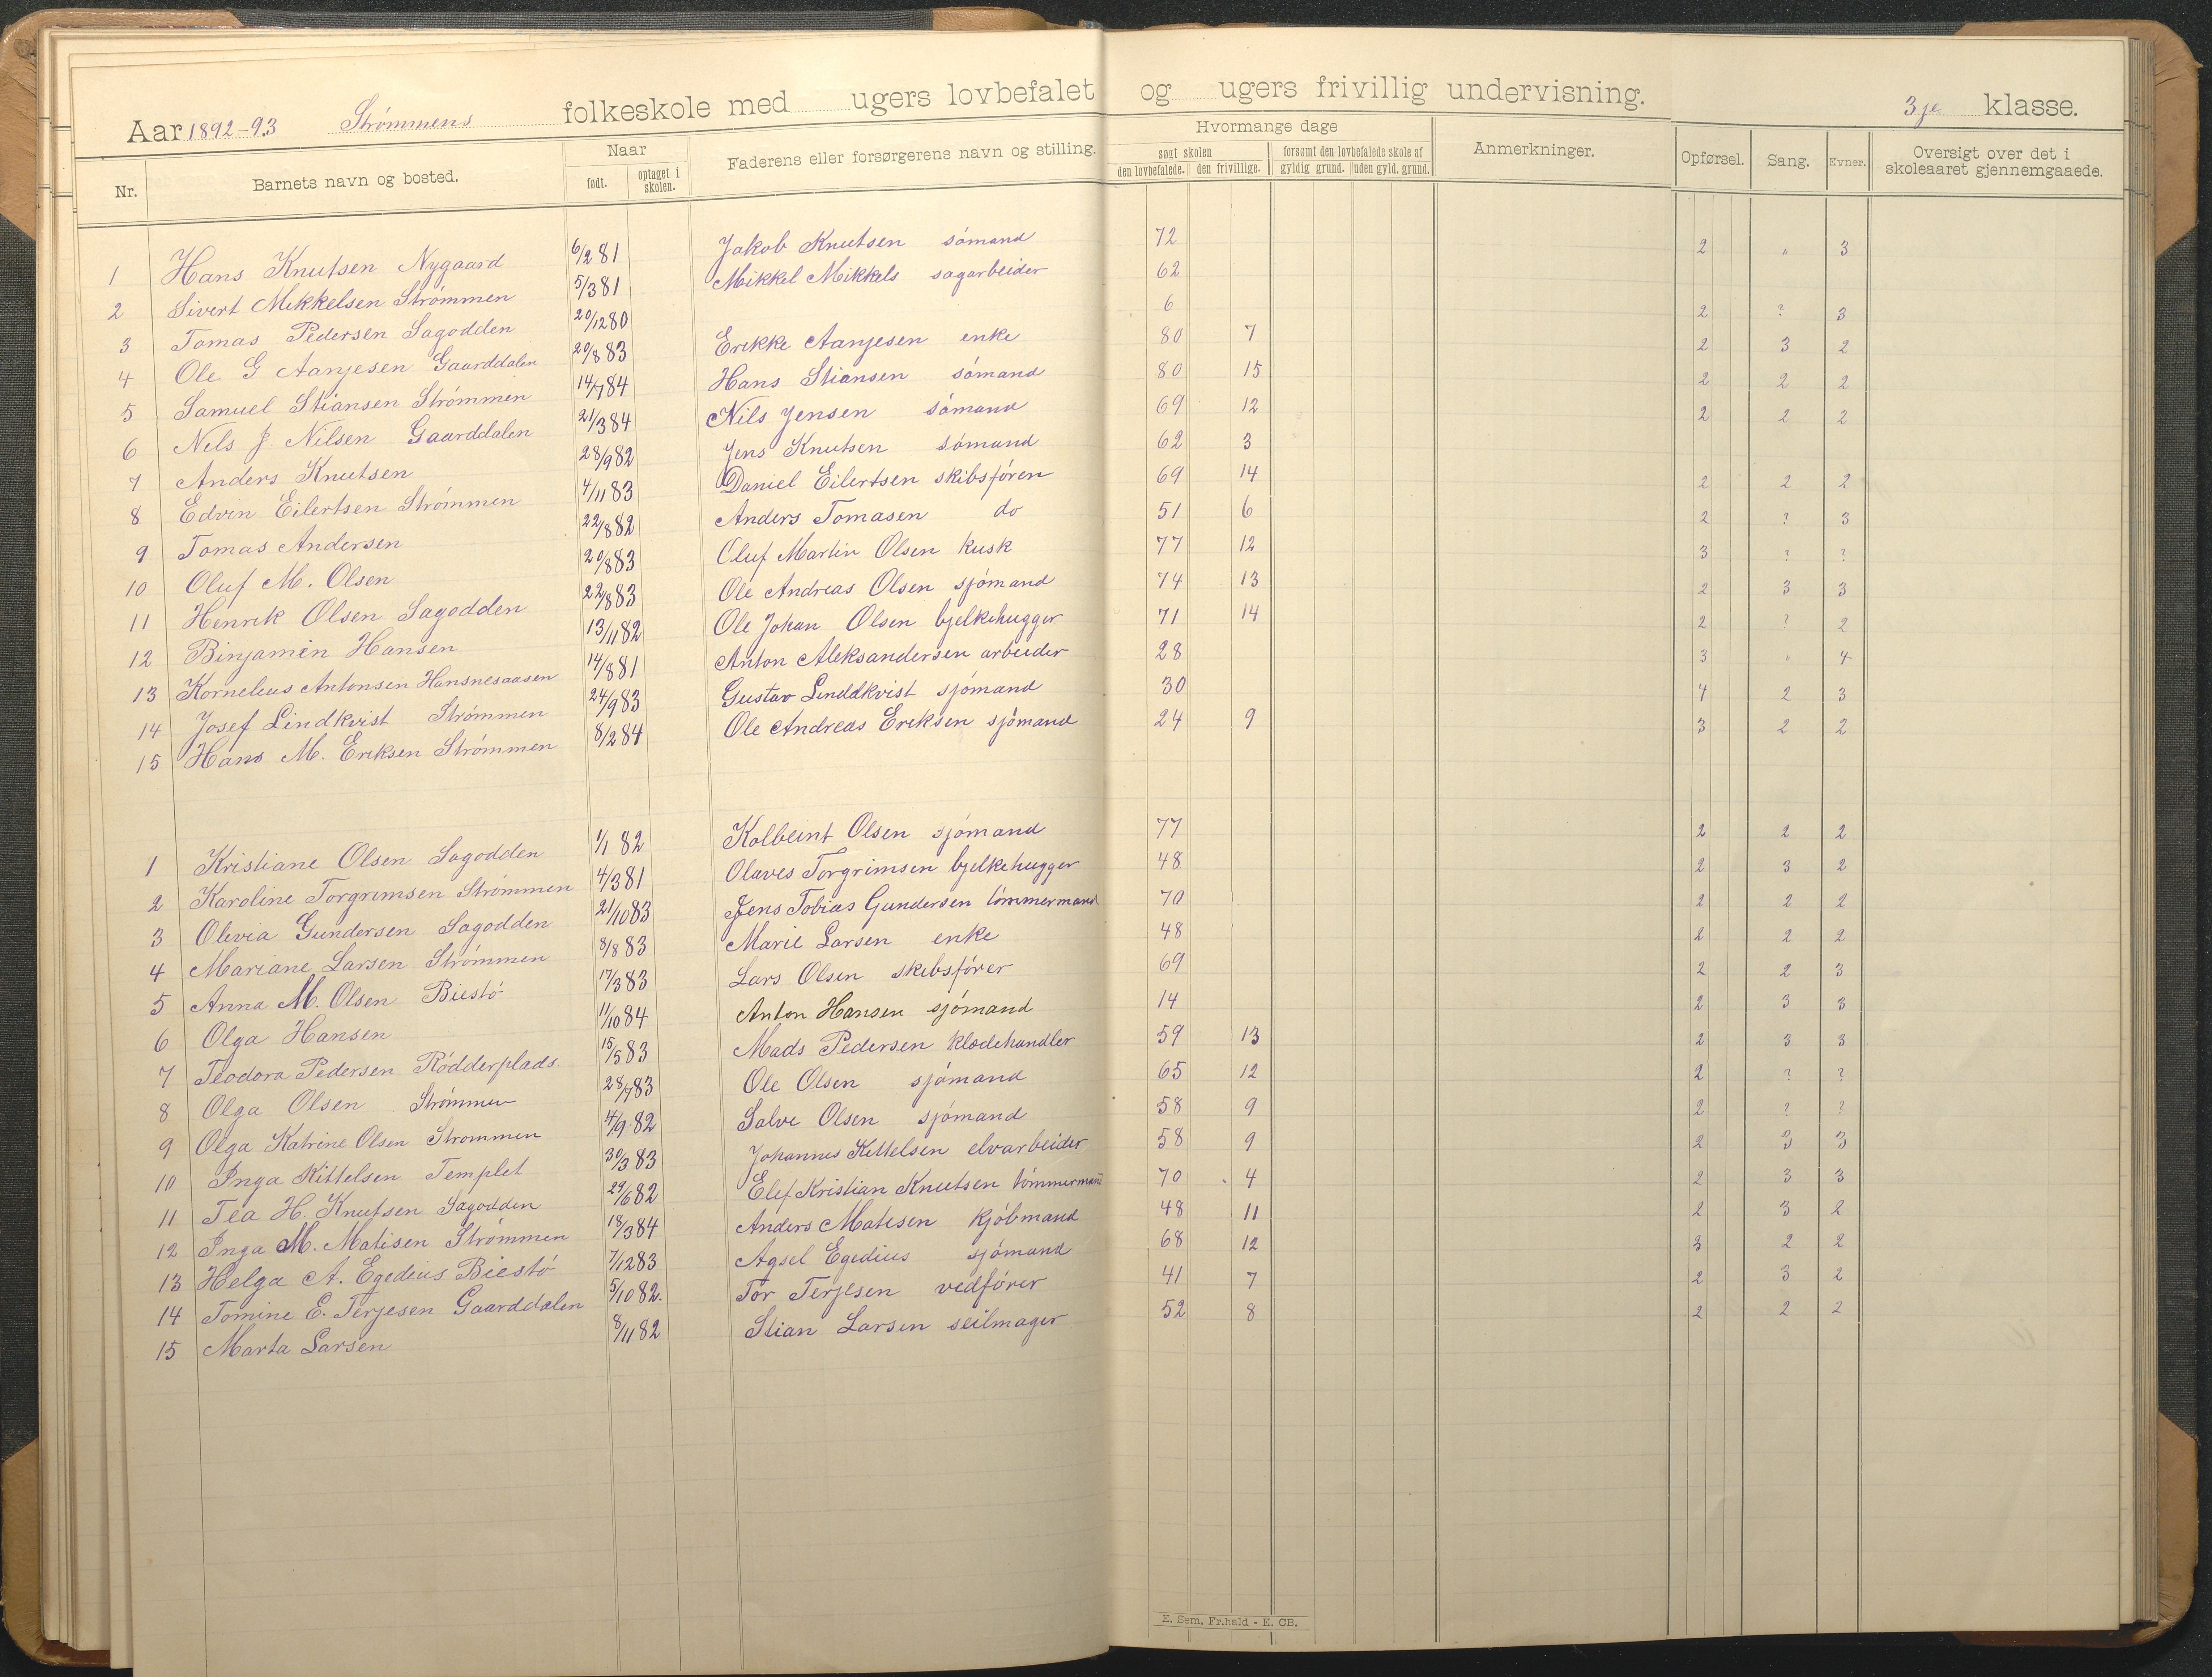 Aar 1892-93 Strømmens folkeskole med ugers lovbefalet og ugers frivillig undervisning. 3je klasse.
Nr. Barnets navn og bosted. Naar født. optaget i skolen. Faderens eller forsørgerens navn og stilling. Hvormange dage søgt skolen den lovbefalede. den frivillige. forsømt den lovbefalede skole af gyldig grund. uden gyld. grund. Anmerkninger. Opførsel. Sang. Evner. Oversigt over det i skoleaaret gjennemgaaede.
1 Hans Knutsen Nygaard 6/2 81 Jakob Knutsen sømand 72 2 " 3
2 Sivert Mikkelsen Strømmen 5/3 81 Mikkel Mikkels sagarbeider 62
3 Tomas Pedersen Sagodden 20/12 80 6 2 ? 3
4 Ole G Aanjesen Gaarddalen 20/8 83 Erikke Aanjesen enke 80 7 2 3 2
5 Samuel Stiansen Strømmen 14/7 84 Hans Stiansen sømand 80 15 2 2 2
6 Nels J. Nilsen Gaarddalen 21/3 84 Nils Jensen sømand 69 12 2 2 2
7 Anders Knutsen 28/9 82 Jens Knutsen sømand 62 3
8 Edvin Eilertsen Strømmen 4/11 83 Daniel Eilertsen skibsføren 69 14 2 2 2
9 Tomas Andersen 22/8 82 Anders Tomasen do 51 6 2 ? 3
10 Oluf M. Olsen 20/8 83 Oluf Martin Olsen kusk 77 12 3 ? ?
11 Henrik Olsen Sagodden 22/8 83 Ole Andreas Olsen sjømand 74 13 2 3 3
12 Binjamin Hansen 13/11 82 Ole Johan Olsen bjelkehugger 71 14 2 ? 2
13 Kornelius Antonsen Hansnesaasen 14/8 81 Anton Aleksandersen arbeider 28 3 " 4
14 Josef Lindkvist Strømmen 24/9 83 Gustav Linddkvist sjømand 30 4 2 3
15 Hans M. Eriksen Strømmen 8/2 84 Ole Andreas Eriksen sjømand 24 9 3 2 2
1 Kristiane Olsen Sagodden 1/1 82 Kolbeint Olsen sjømand 77 2 2 2
2 Karoline Torgrimsen Strømmen 4/3 81 Olaves Torgrimsen bjelkehugger 48 2 3 2
3 Olivia Gundersen Sagodden 21/10 83 Jens Tobias Gundersen tømmermand 70 2 2 2
4 Mariane Larsen Strømmen 8/8 83 Marie Larsen enke 48 2 2 2
5 Anna M. Olsen Biestø 17/3 83 Lars Olsen skibsfører 69 2 2 3
6 Olga Hansen 11/10 84 Anton Hansen sjømand 14 2 3 3
7 Teodora Pedersen Rødderplads. 15/5 83 Mads Pedersen klædehandler 59 13 2 3 3
8 Olga Olsen Strømmen 28/7 83 Ole Olsen sjømand 65 12 2 ? ?
9 Olga Katrine Olsen Strommen 4/9 82 Salve Olsen sjømand 58 9 2 ? ?
10 Inga Kittelsen Templet 30/3 83 Johannes Kittelsen elvarbeider 58 9 2 3 3
11 Tea H. Knutsen Sagodden 29/6 82 Elef Kristian Knutsen tømmermand 70 4 2 3 3
12 Inga M. Matisen Strømmen 18/3 84 Anders Matisen kjøbmand 48 11 2 3 2
13 Helga A. Egedius Biestø 7/12 83 Agsel Egedius sjømand 68 12 3 2 2
14 Tomine E. Terjesen Gaarddalen 5/10 82. Tor Terjesen vedfører 41 7 2 3 2
15 Marta Larsen 8/11 82 Stian Larsen seilmager 52 8 2 2 2
E. Sem, Fr.hald - E. CB.